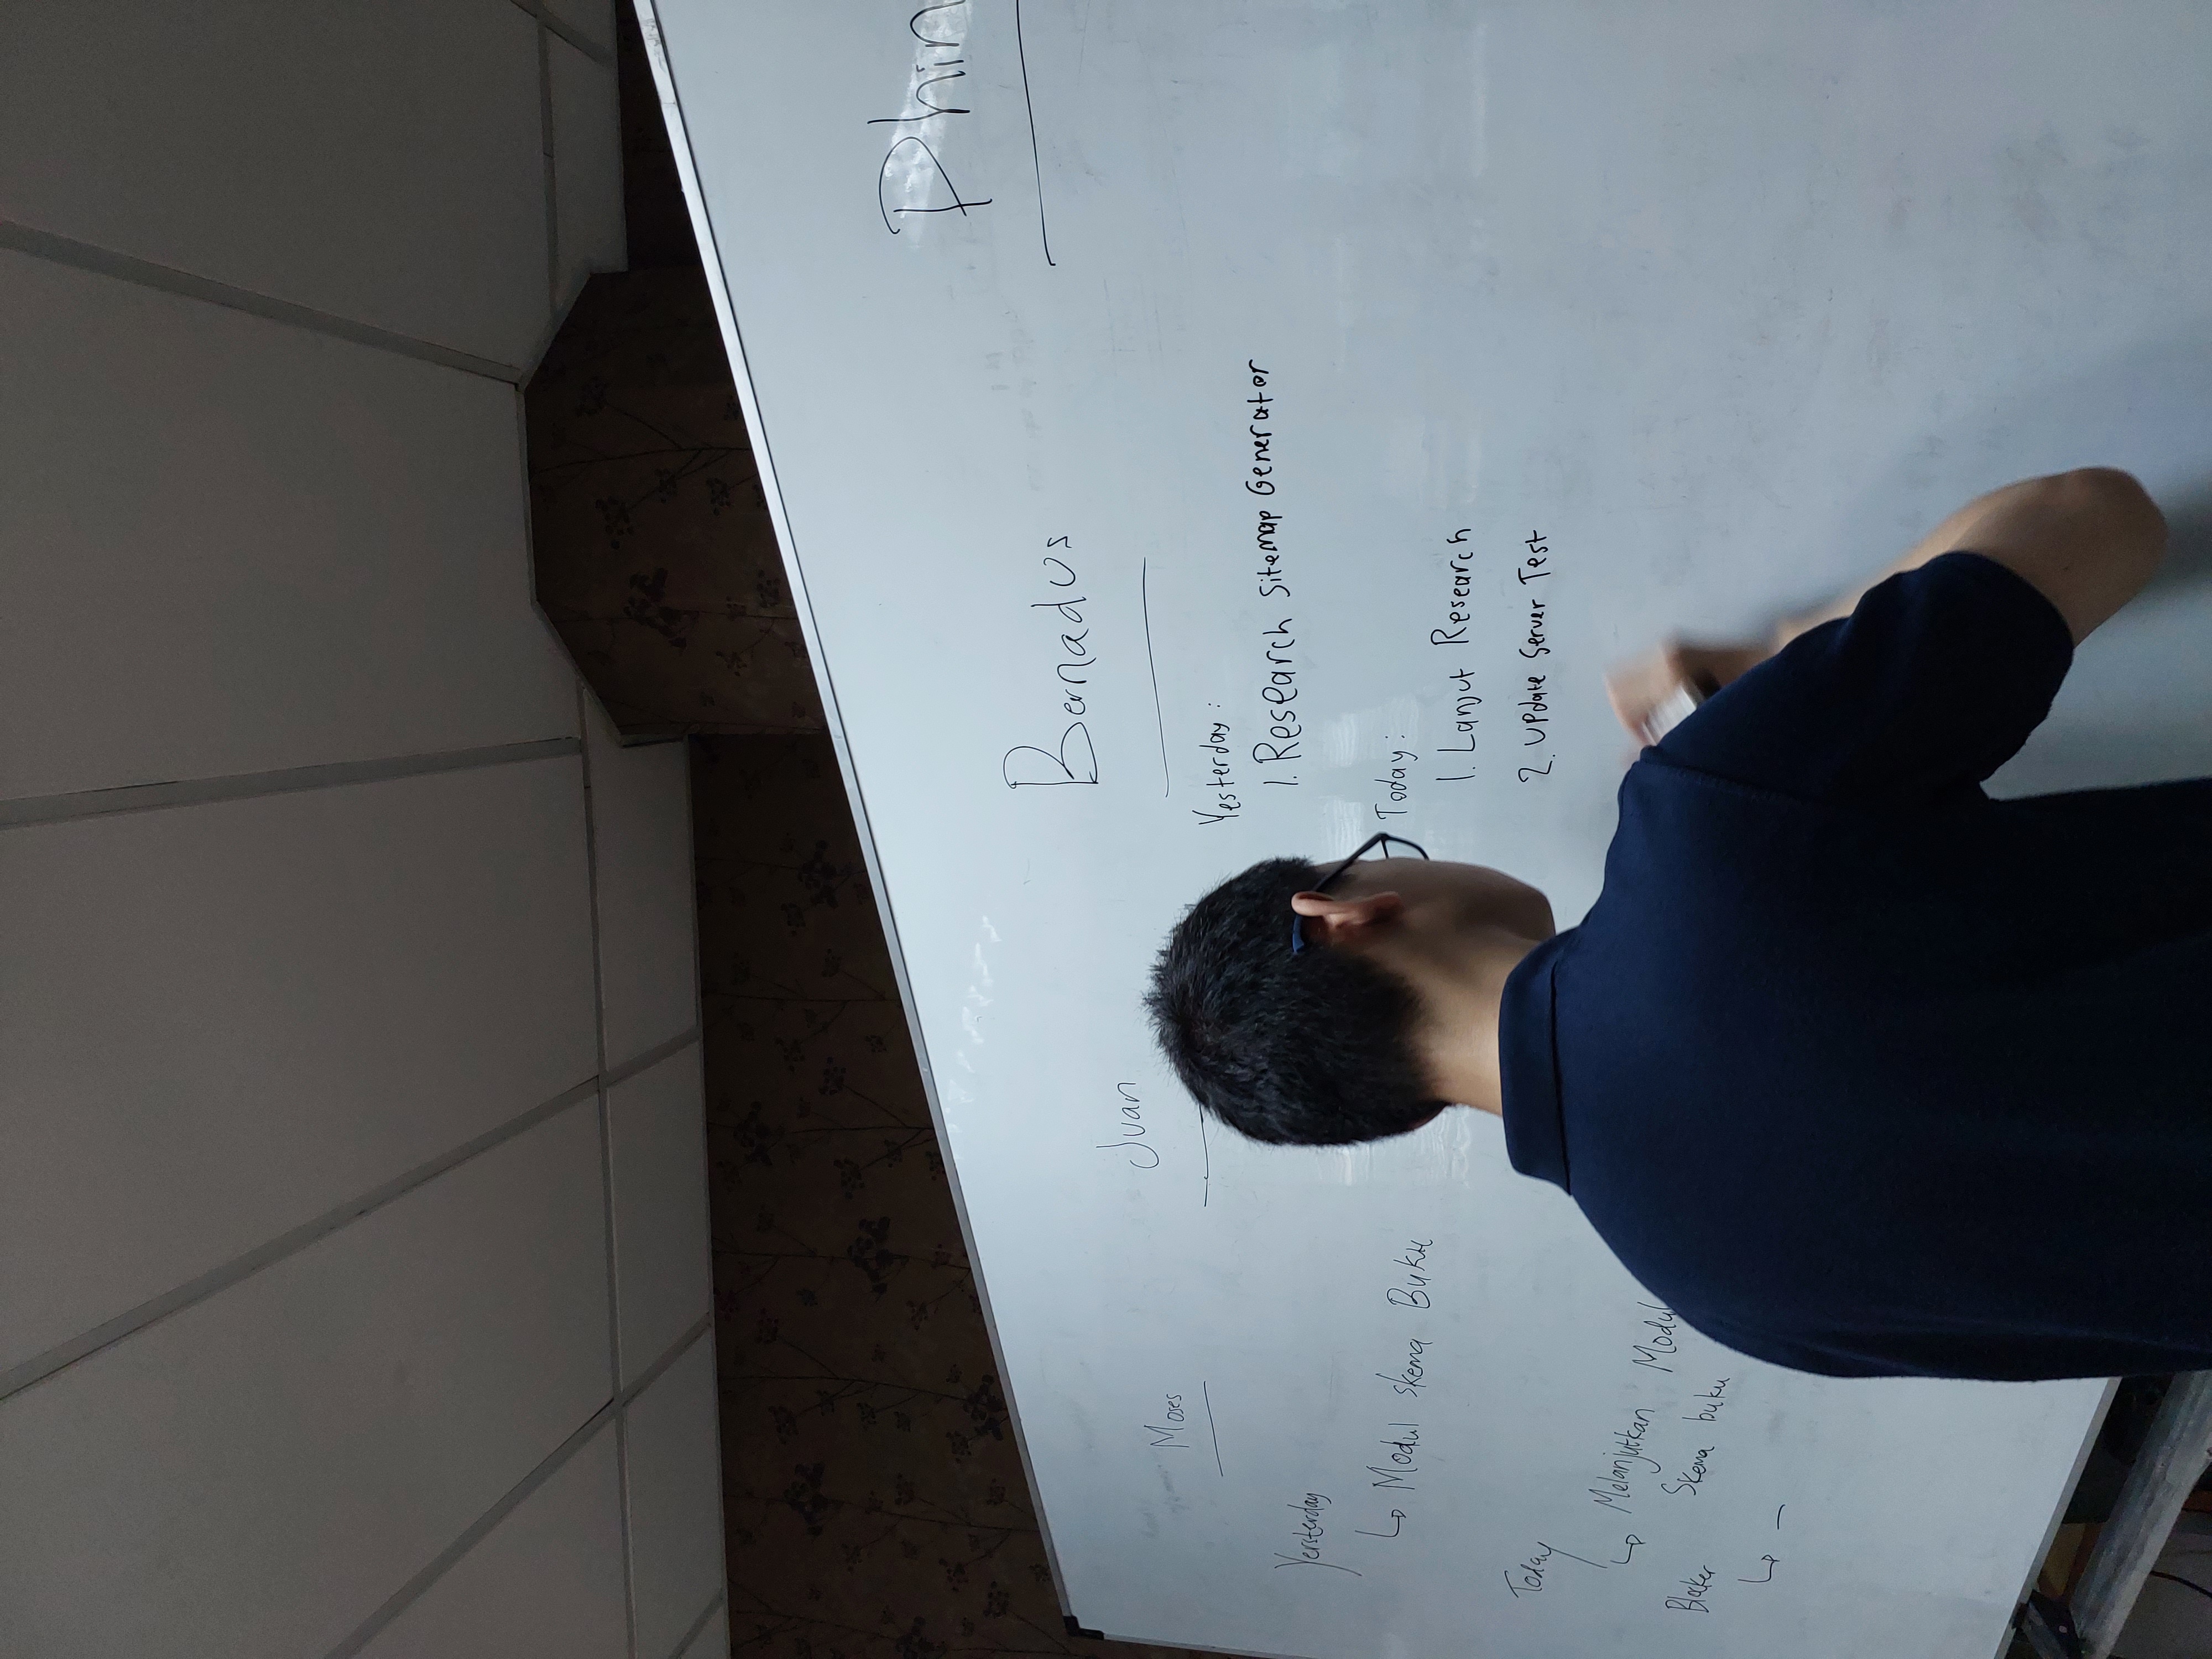 Moses
Yersterday
Modul skema Buku
Today
Melanjutkan Modul
Skema buku
Blocker
-
Juan
Bernadus
Yesterday :
1. Research Sitemap Generator
Today :
1. Lanjut Research
2. Update Server Test
Phin